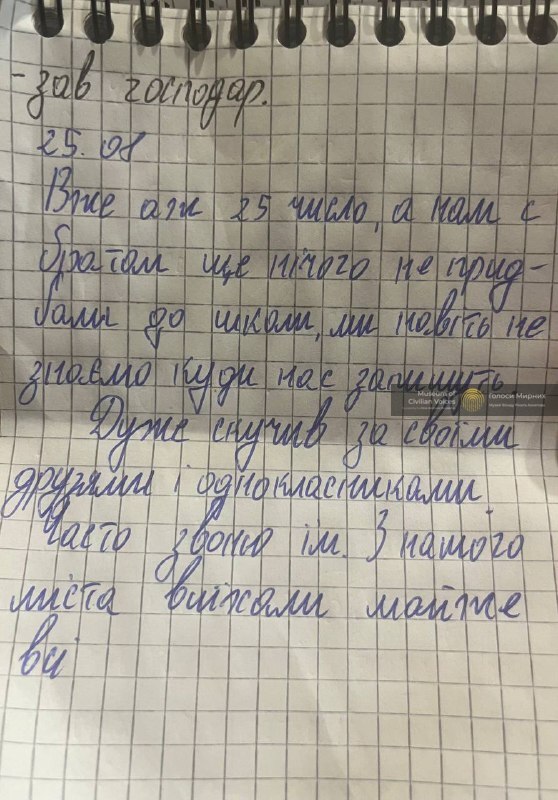 - зав господар.
25. 08
Вже аж 25 число, а нам с
братам ще нічого не прид-
бали до школи, ми навіть не
знаємо куди нас запишуть.
Museum of
Civilian Voices
Голоси Мирних
Дуже скучив за своїми
друзями і однокласниками.
Часто звоню їм. З нашого
міста виїхали майже
всі